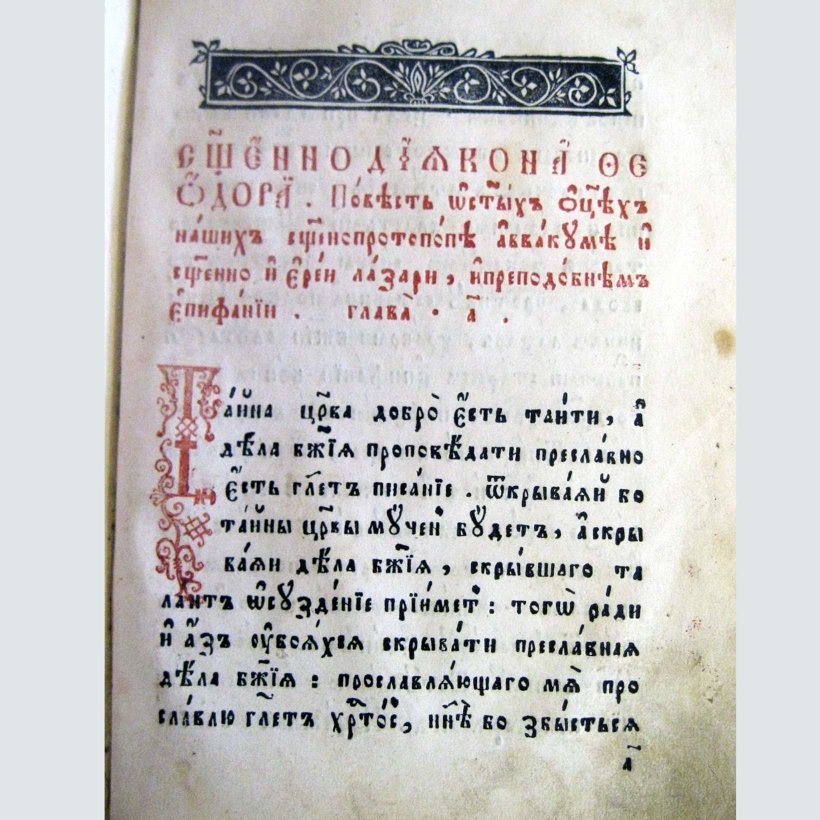 сщ҃е́нно дїѧ́кона ѳе
ѻ҆́дора . По́вѣсть ѡ҆ст҃ы́хъ ѻ҆ц҃ѣ́хъ
на́шихъ сщ҃е́нопротопо́пѣ а҆ввакꙋ́мѣ и҆
сщ҃е́нно и҆ ере́и ла́зари , и҆преподо́бнѣмъ
є҆пифа́нїи . глава̀ · а҃ .
Та́йна цр҃ва добро̀ є҆́сть таи́ти , а҆
дѣ́ла бж҃їѧ проповѣ́дати пресла́вно
є҆́сть гл҃етъ писа́нїе . ѿкрыва́ѧй бо
та́йны цр҃вы мꙋ́чен бꙋ́детъ , а҆скры
ва́ѧи дѣ́ла бж҃їѧ , скры́вшаго та
ла́нтъ ѡ҆сꙋзде́нїе прїи́мет : тогѡ̀ ра́ди
и҆ а҆́зъ ᲂу҆боѧ́хсѧ скрыва́ти пресла́внаѧ
дѣ́ла бж҃їѧ : прославлѧ́ющаго мѧ̀ про
сла́влю гл҃етъ хр҃то́с , нн҃ѣ бо збы́стьсѧ
а҃